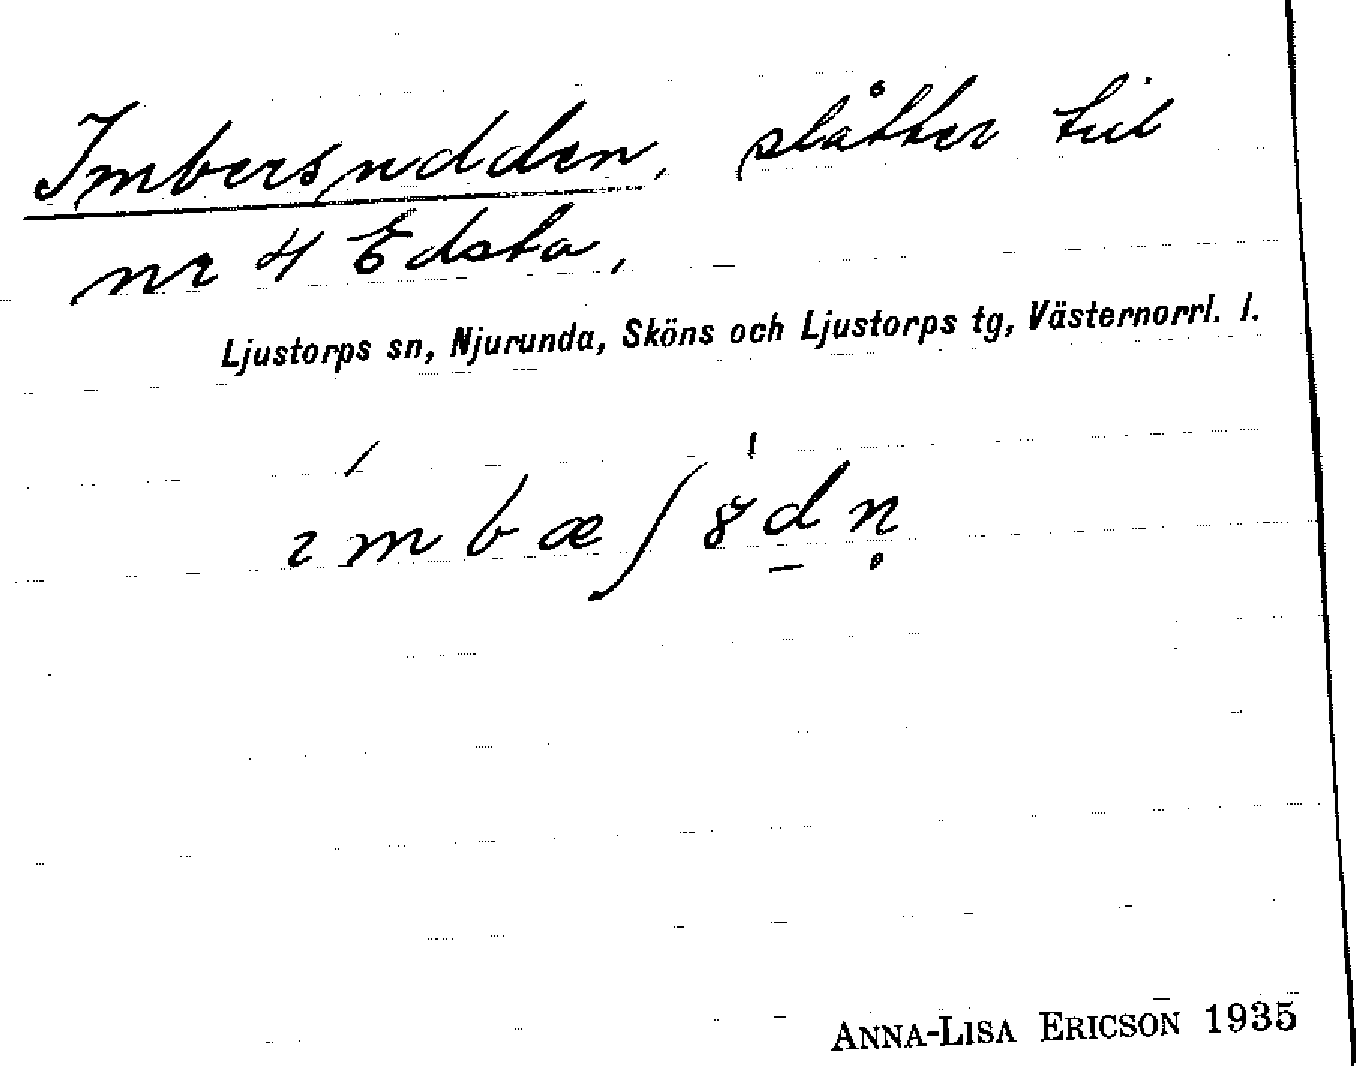 Imbersudden, slåtter till
nr 4 Edsta,
Ljustorps sn, Njurunda, Sköns och Ljustorps tg, Västernorrl. l.
ANNA-LISA ERICSON 1935